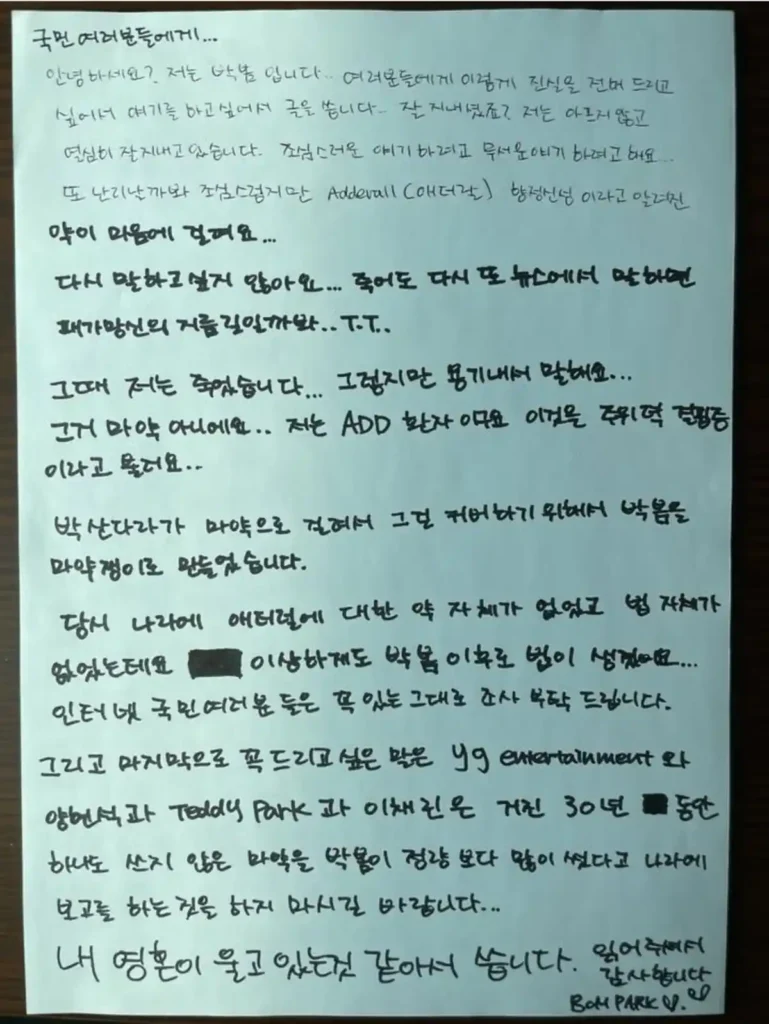 국민 여러분들에게...
안녕하세요? 저는 박봄 입니다.. 여러분들에게 이렇게 진실을 전해 드리고
싶어서 얘기를 하고싶어서 글을 씁니다.. 잘 지내셨죠? 저는 아프지 않고
열심히 잘지내고 있습니다. 조심스러운 얘기 하려고 무서운얘기 하려고 해요...
또 난리날까봐 조심스럽지만 Adderall (애더랄) 향정신성 이라고 알려진
약이 마음에 걸려요...
다시 말하고싶지 않아요... 죽어도 다시 또 뉴스에서 말하면
패가망신의 지름길일까봐..T.T..
그때 저는 죽었습니다... 그렇지만 용기내서 말해요...
그거 마약 아니에요.. 저는 ADD 환자 이구요 이것은 주위력 결핍증
이라고 불러요..
박산다라가 마약으로 걸려서 그걸 커버하기 위해서 박봄을
마약쟁이로 만들었습니다.
당시 나라에 애더럴에 대한 약 자체가 없었고 법 자체가
없었는데요 이상하게도 박봄 이후로 법이 생겼어요...
인터넷 국민여러분 들은 꼭 있는 그대로 조사 부탁 드립니다.
그리고 마지막으로 꼭 드리고 싶은 말은 yg entertainment 와
양현석과 Teddy Park 과 이채린은 거진 30년 동안
하나도 쓰지 않은 마약을 박봄이 정량 보다 많이 썼다고 나라에
보고를 하는것을 하지 마시길 바랍니다...
내 영혼이 울고 있는것 같아서 씁니다. 읽어주셔서
감사합니다
BOM PARK♡.